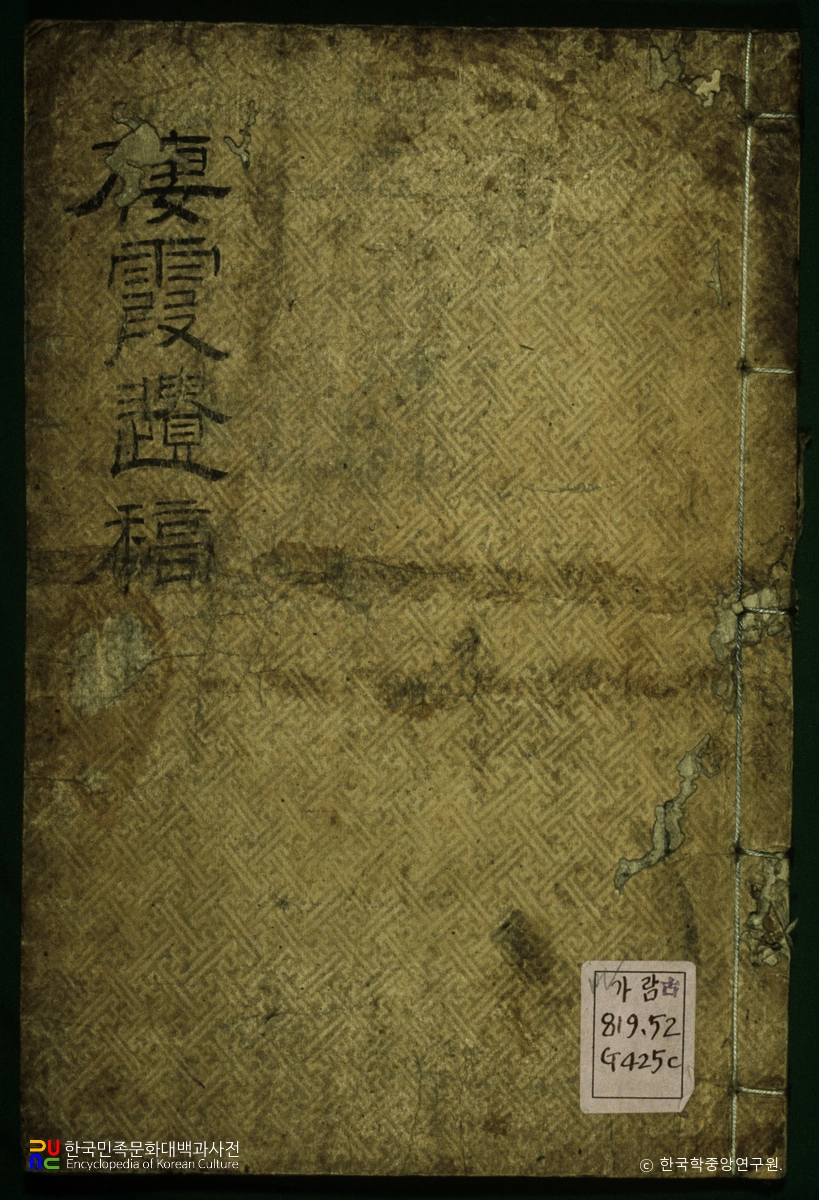 棲霞遺稿
가람古
819.52
G425c
한국민족문화대백과사전
Encyclopedia of Korean Culture
© 한국학중앙연구원